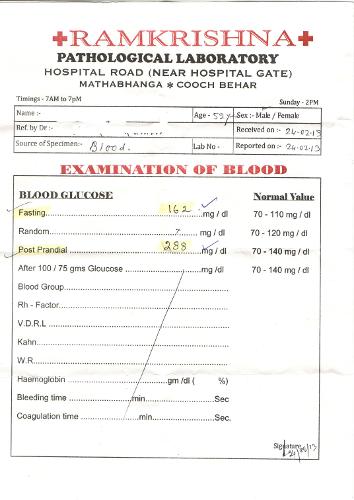 +RAMKRISHNA+
PATHOLOGICAL LABORATORY
HOSPITAL ROAD (NEAR HOSPITAL GATE)
MATHABHANGA * COOCH BEHAR
Timings - 7AM to 7pM Sunday - 2PM
Name :- Age - 59 y Sex :- Male / Female
Ref. by Dr :- Received on :- 24-02-13
Source of Specimen:- Blood. Lab No - Reported on :- 24-02-13
EXAMINATION OF BLOOD
BLOOD GLUCOSE Normal Value
Fasting 162 mg / dl 70 - 110 mg / dl
Random mg / dl 70 - 120 mg / dl
Post Prandial 288 mg / dl 70 - 140 mg / dl
After 100 / 75 gms Gloucose mg / dl 70 - 140 mg / dl
Blood Group
Rh - Factor
V.D.R.L
Kahn
W.R
Haemoglobin gm /dl ( %)
Bleeding time min Sec
Coagulation time min Sec
Signature